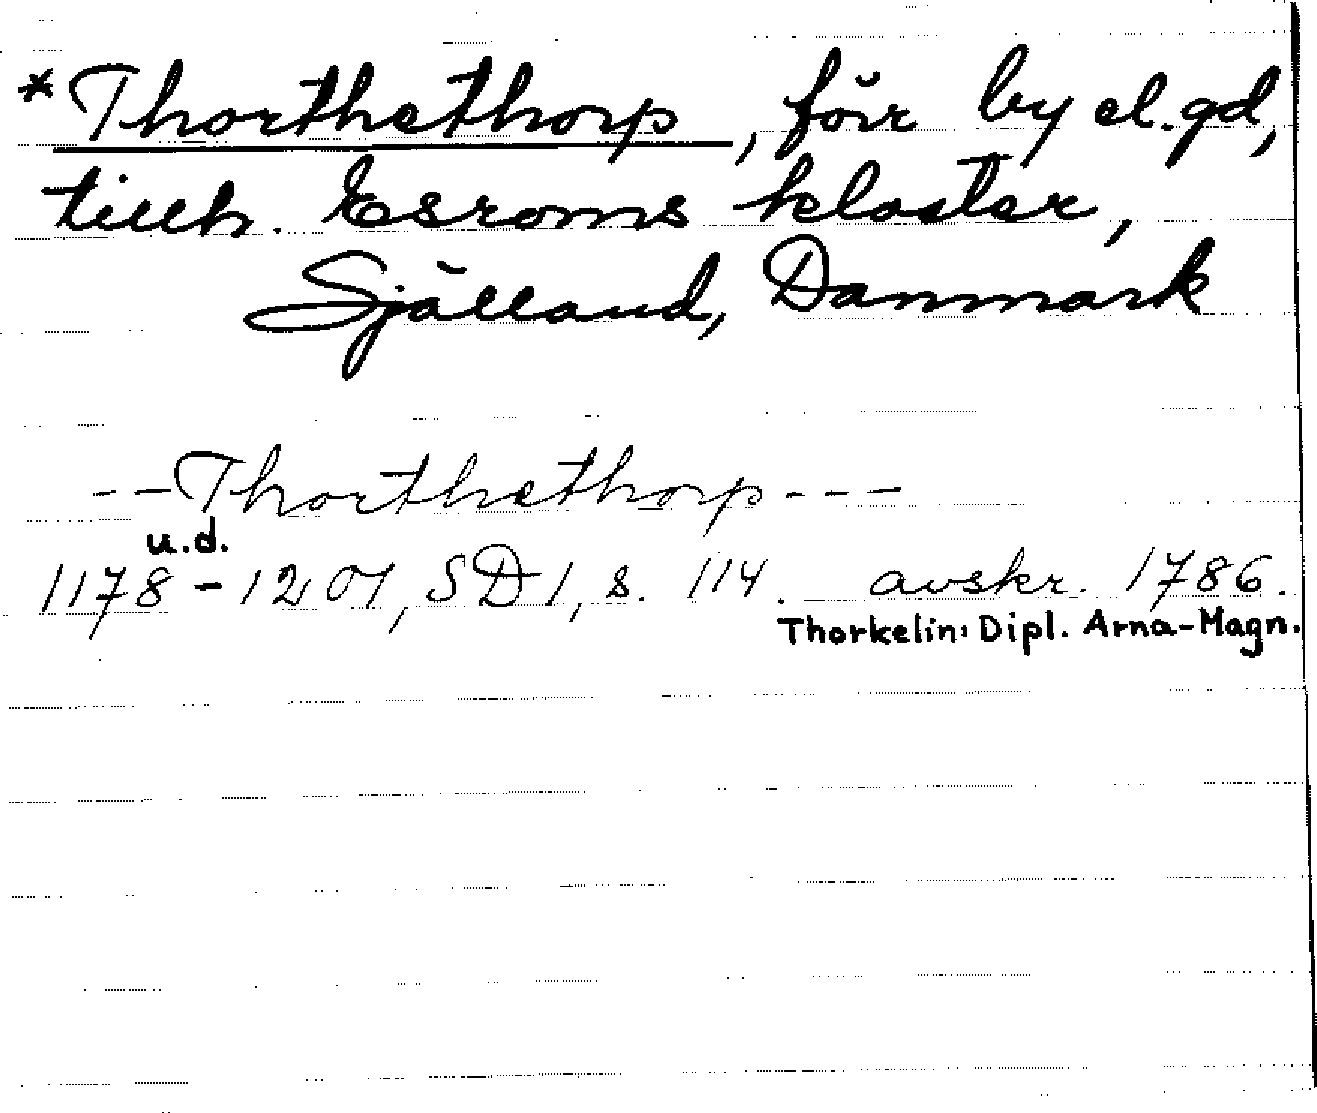 *Thorthethorp, förr by el. gd,
tillh. Esroms kloster,
Själland, Danmark
--Thorthethorp---
u.d.
1178-1201, SD 1, s. 114. avskr. 1786.
Thorkelin: Dipl. Arna-Magn.